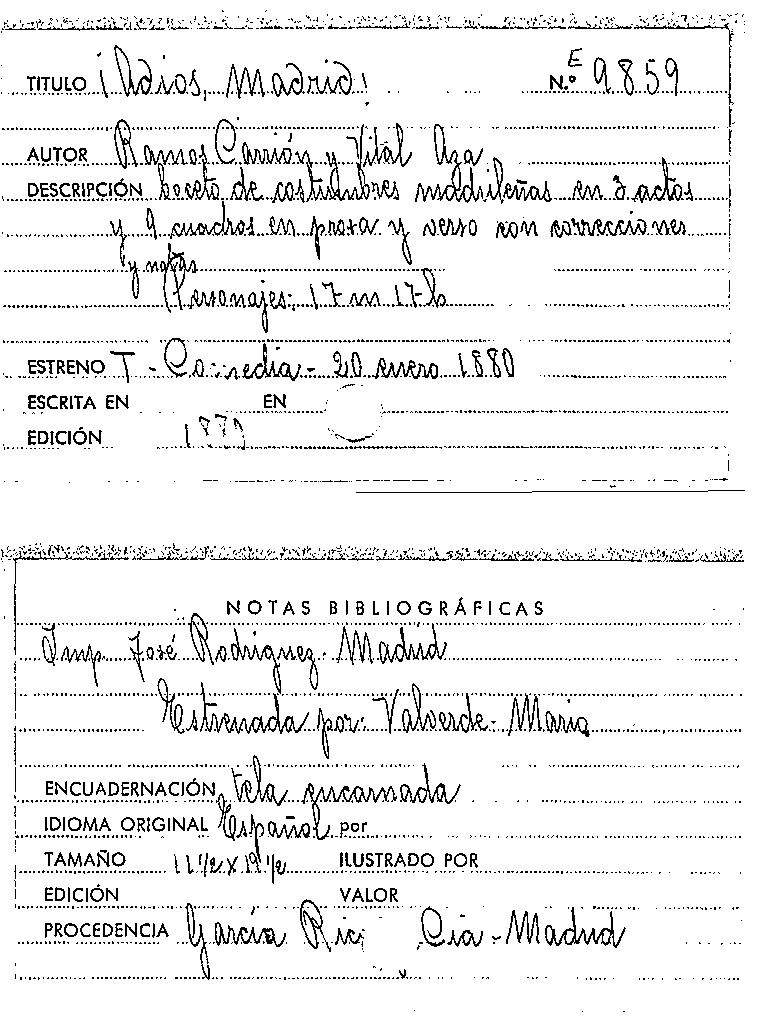 TITULO ¡Adios, Madrid! N.º E 9859
AUTOR Ramos Carrión y Vital Aza
DESCRIPCIÓN boceto de costumbres madrileñas en 3 actos
y 9 cuadros en prosa y verso con correcciones
y notas
Personajes: 17 m 17 h
ESTRENO T - Comedia - 20 enero 1880
ESCRITA EN EN
EDICIÓN
NOTAS BIBLIOGRÁFICAS
Imp José Rodriguez - Madrid
Estrenada por: Valverde - Mario
ENCUADERNACIÓN tela encarnada
IDIOMA ORIGINAL Español por
TAMAÑO 11 1/2 x 19 1/2 ILUSTRADO POR
EDICIÓN VALOR
PROCEDENCIA García Rico Cia - Madrid